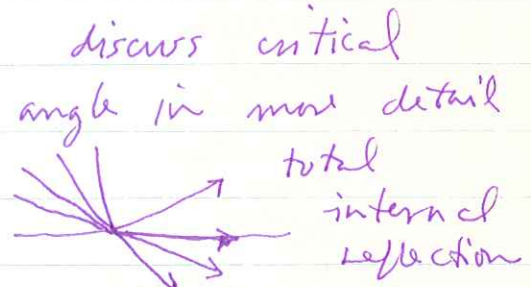 discuss critical
angle in more detail
total
internal
reflection